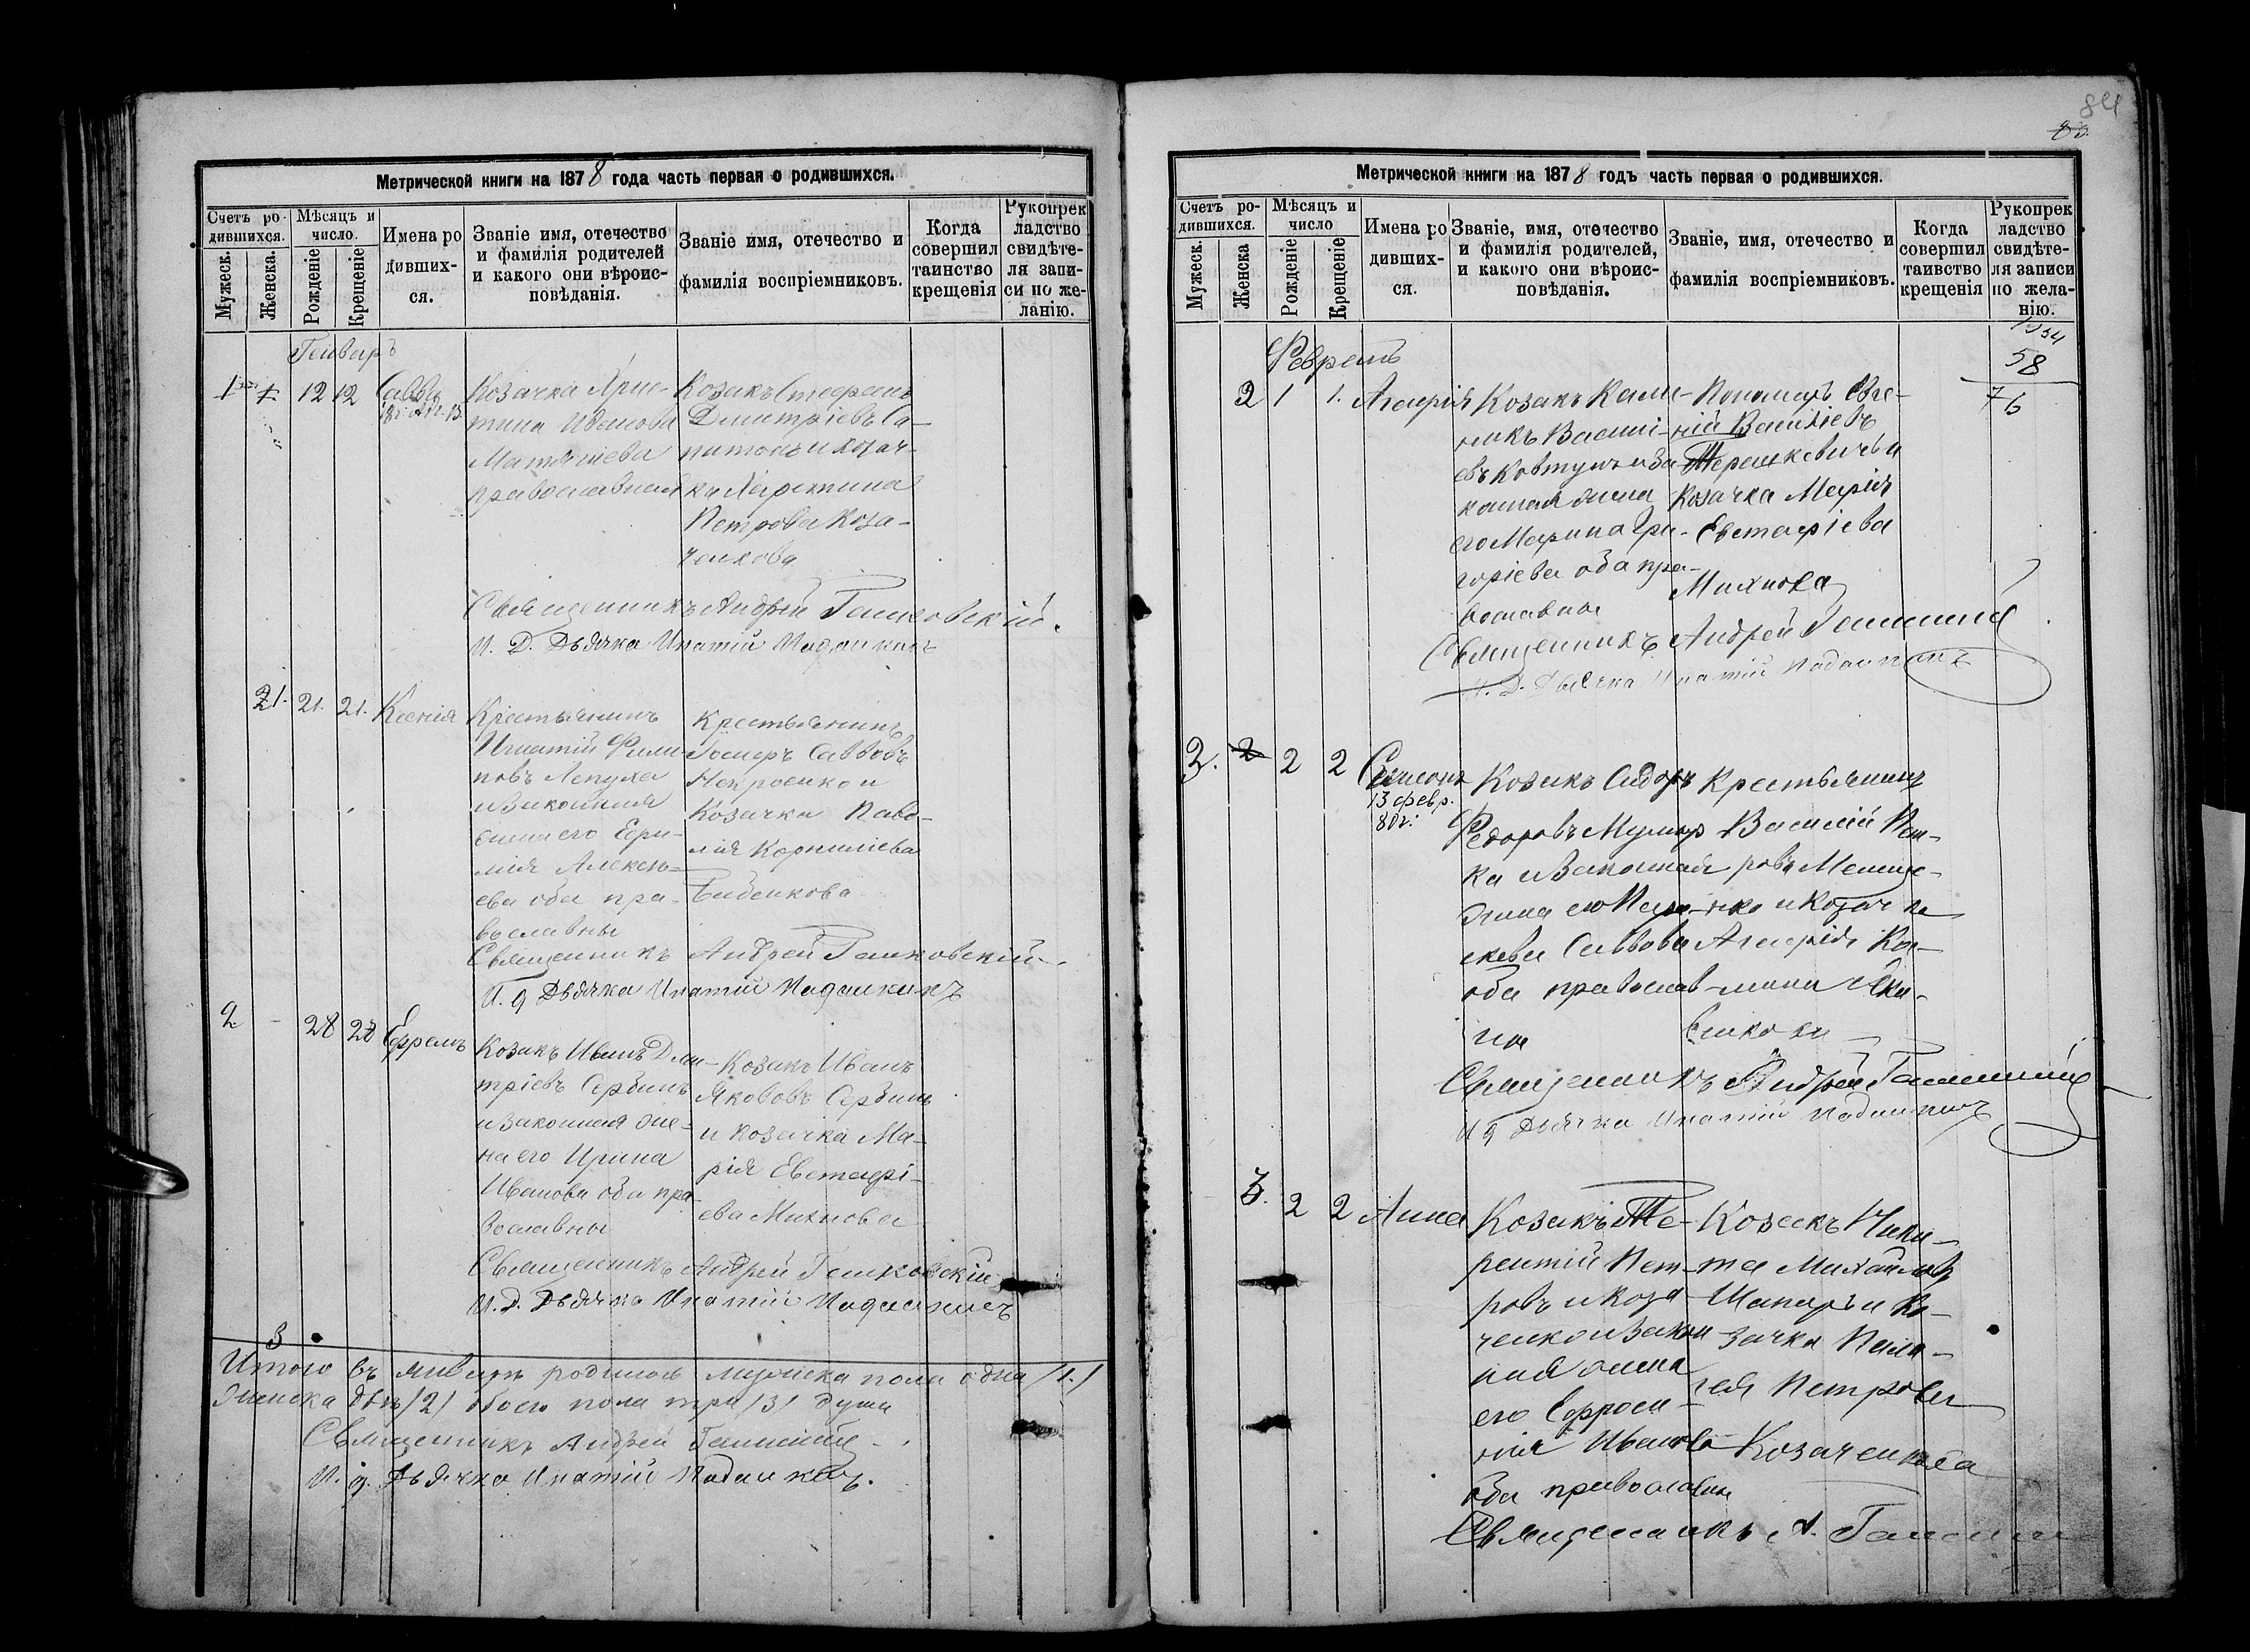 Метрической книги на 1878 года часть первая о родившихся.
Счетъ ро-
дившихся.
Мѣсяцъ и
число.
Мужеск.
Женска.
Рожденіе
Крещеніе
Имена ро
дивших-
ся.
Званіе имя, отечество
и фамилія родителей
и какого они вѣроис-
повѣданія.
Званіе имя, отечество и
фамилія воспріемниковъ.
Когда
совершил
таинство
крещенія
Рукоприк
ладство
свидѣте-
ля запи-
си по же-
ланію.
Генварь
1 1 12 12 Савва
Козачка Хрис-
тина Иванова
Матяшева
православная
Козакъ Стефанъ
Дмитріевъ Са-
питонъ и козач-
ка
Петрова Коза-
ченкова
Священникъ Андрей Ганковскій.
И. Д. Дьячка Ипатій
21. 21. Ксенія
Крестьянинъ
Игнатій Фили-
повъ Лепуха
и законная
жена его Ефи-
мія Алексѣ-
ева оба пра-
вославны
Крестьянинъ
Іосифъ Саввовъ
и
Козачка Павс-
лія Корниліева
Бабенкова
Священникъ Андрей Ганковскій
И. д Дьячка Ипатій
2 - 28 28 Ефремъ
Козакъ Иванъ Дми-
тріевъ Сербинъ
и законная же-
на его Ирина
Иванова оба пра-
вославны
Козакъ Иванъ
Якововъ Сербинъ
и козачка Ма-
рія Евстафі-
ева Михнова
Священникъ Андрей Ганковскій
И. Д. Дьячка Ипатій
3
Итого въ январѣ родилось мужеска пола одна /1/
женска двѣ /2/ обоего пола три /3/ души
Священникъ Андрей
И. д. Дьячка Ипатій
84
Метрической книги на 1878 годъ часть первая о родившихся.
Счетъ ро-
дившихся.
Мѣсяцъ и
число
Мужеск.
Женска
Рожденіе
Крещеніе
Имена ро
дивших-
ся.
Званіе, имя, отечество
и фамилія родителей,
и какого они вѣроис-
повѣданія.
Званіе, имя, отечество и
фамилія воспріемниковъ.
Когда
совершил
таивство
крещенія
Рукоприк
ладство
свидѣте-
ля записи
по жела-
нію.
58
76
Февраль
2 1 1. Агафія
Козакъ Кали-
никъ Васили-
евъ Ковтунъ и за-
конная жена
его Марина Гри-
горіева оба пра-
вославны
Пономарь Евге-
ній Василіевъ
Терешкевичъ и
Козачка Марія
Евстафіева
Михнова
Священникъ Андрей
И. Д. Дьячка Ипатій
2. 2 2 2 Симеонъ
13 февр.
80 г.
Козакъ Сидоръ
Федоровъ
ка и законная
жена его Парас-
кева Саввова
оба православ-
ны
Крестьянинъ
Василій Пет-
ровъ Мельни-
ченко и козачка
Агафія
Священникъ Андрей
И д Дьячка Ипатій
3. 2 2 Анна
Козакъ Те-
рентій Пет-
ровъ Коза-
ченко и закон
ная жена
его Ефроси-
нія Иванова
оба православны
Козакъ Ники-
та Михайловъ
Шапаръ и Ко-
зачка Пела-
гея Петрова
Козаченкова
Священникъ А.